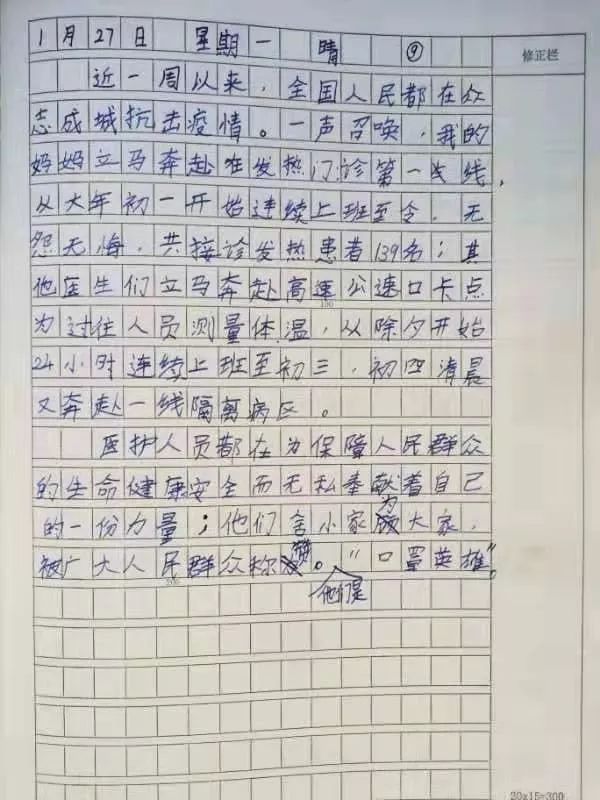 1月27日 星期一 晴 ⑨
修正栏
近一周以来，全国人民都在众
志成城抗击疫情。一声召唤，我的
妈妈立马奔赴在发热门诊第一线，
从大年初一开始连续上班至令，无
怨无悔，共接诊发热患者139名；其
他医生们立马奔赴高速公速口卡点
100
为过往人员测量体温，从除夕开始
24小时连续上班至初三，初四清晨
又奔赴一线隔离病区。
医护人员都在为保障人民群众
的生命健康安全而无私奉献着自己
的一份力量；他们舍小家为大家，
被广大人民群众称赞。他们是"口罩英雄"。
200
20×15=300